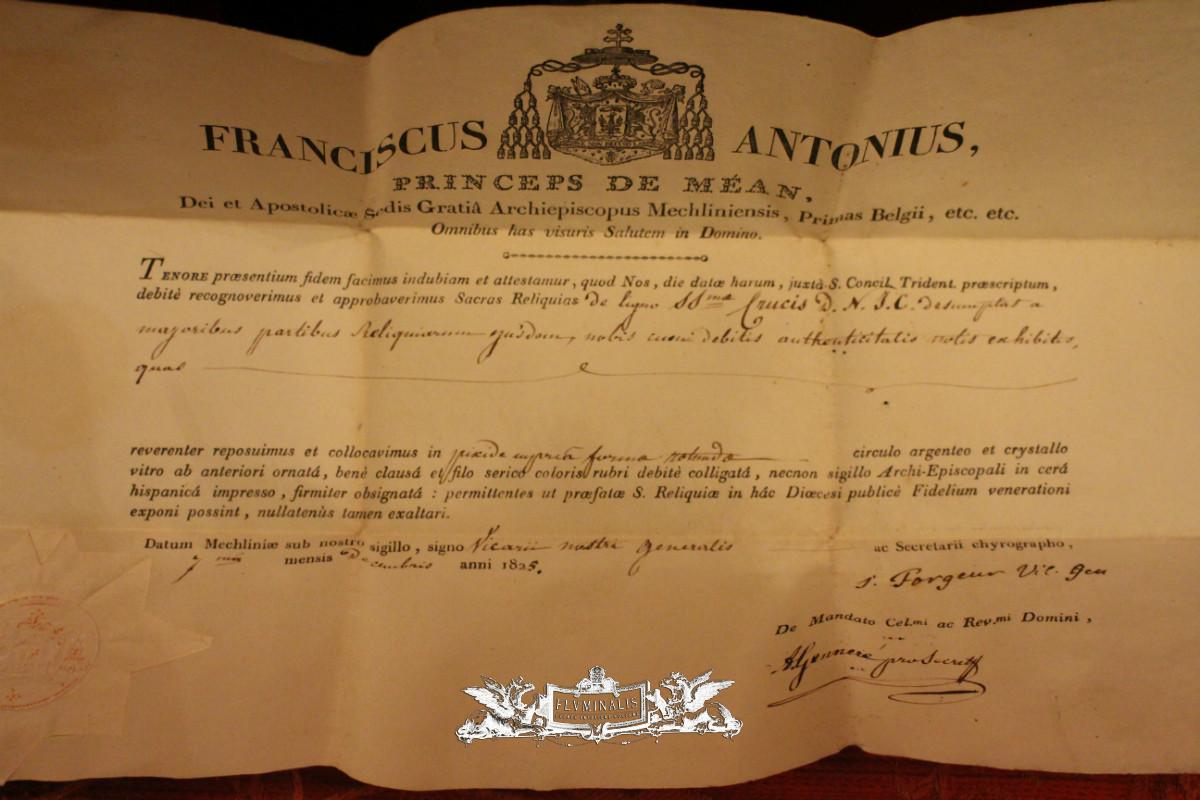 FRANCISCUS ANTONIUS,
PRINCEPS DE MÉAN,
Dei et Apostolicæ Sedis Gratiâ Archiepiscopus Mechliniensis, Primas Belgii, etc. etc.
Omnibus has visuris Salutem in Domino.
TENORE præsentium fidem facimus indubiam et attestamur, quod Nos, die datæ harum, juxtà S. Concil. Trident. præscriptum,
debitè recognoverimus et approbaverimus Sacras Reliquias de ligno SSmæ Crucis D. N. J. C. desumptas a
majoribus partibus Reliquiarum ejusdem, nobis cum debitis authenticitatis notis exhibitis,
quas
reverenter reposuimus et collocavimus in pixide cupreâ forma rotunda circulo argenteo et crystallo
vitro ab anteriori ornatá, benè clausá et filo serico coloris rubri debitè colligatá, necnon sigillo Archi-Episcopali in cerá
hispanicá impresso, firmiter obsignatá : permittentes ut præfatæ S. Reliquiæ in hác Diœcesi publicè Fidelium venerationi
exponi possint, nullatenùs tamen exaltari.
Datum Mechliniæ sub nostro sigillo, signo Vicarii nostri generalis ac Secretarii chyrographo,
7 mensis Decembris anni 1825.
J. Forgeur Vic. gen
De Mandato Cel.mi ac Rev.mi Domini,
proSecret
FLVMINALIS